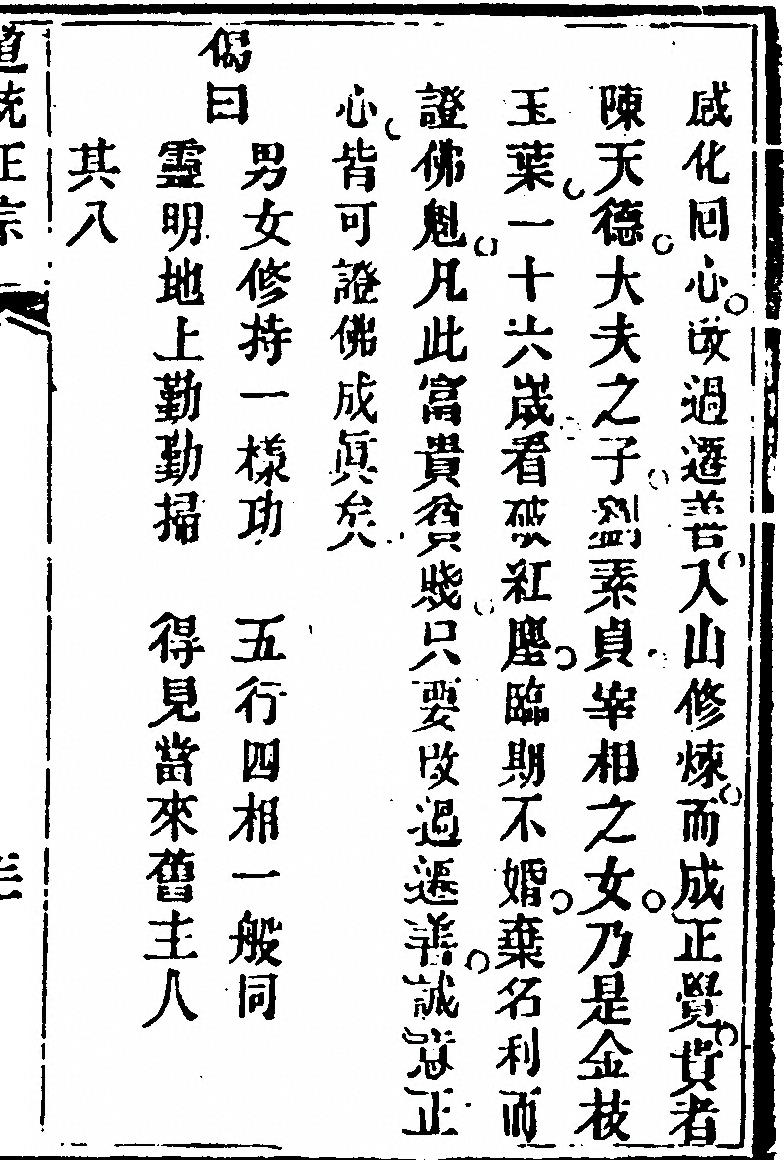 感化回心改過遷善入山修煉而成正覺貴者
陳天德大夫之子劉素貞宰相之女乃是金枝
玉葉一十六歲看破紅塵臨期不婚棄名利而
證佛魁凡此富貴貧賤只要改過遷善誠意正
心皆可證佛成眞矣
偈曰
男女修持一樣功　五行四相一般同
靈明地上勤勤掃　得見當來舊主人
其八
道統正宗